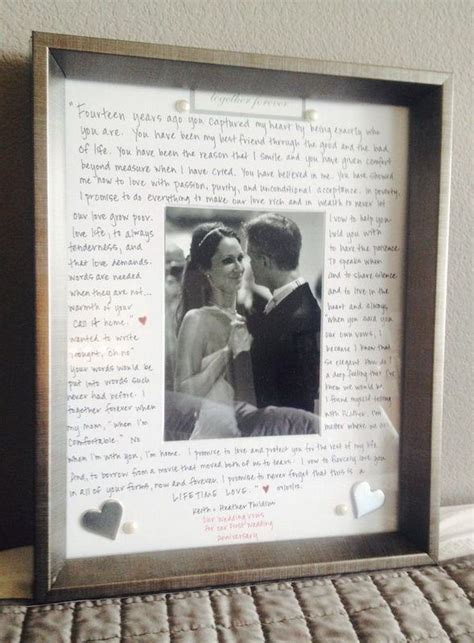 together forever
"Fourteen years ago you captured my heart by being exactly who
you are. You have been my best friend through the good and the bad
of life. You have been the reason that I smile and you have given comfort
beyond measure when I have cried. You have believed in me. You have showed
me how to love with passion, purity, and unconditional acceptance. In poverty,
I promise to do everything to make our love rich and in wealth to never let
our love grow poor. I vow to help you
love life, to always hold you with
tenderness, and to have the patience
that love demands. To speak when
words are needed and to share silence
when they are not... and to live in the
warmth of your heart and always
call it home." ♥ "When you said you
wanted to write our own vows, I
thought, oh no because I knew that
your words would be so elegant. How do I
put into words such a deep feeling that I've
never had before. I knew we would be
together forever when I found myself telling
my mom, "when I'm with Heather, I'm
comfortable." No matter where we are
when I'm with you, I'm home. I promise to love and protect you for the rest of my life.
And, to borrow from a movie that moved both of us to tears: I vow to fiercely love you
in all of your forms, now and forever. I promise to never forget that this is a
LIFETIME LOVE." ♥
Keith + Heather
Our wedding vows
for our first wedding
anniversary